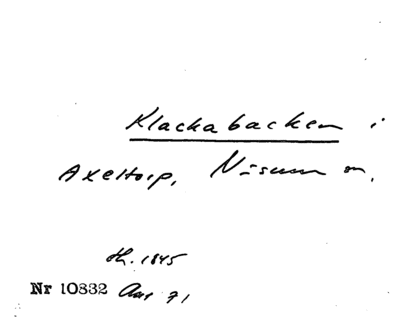 Klackabacken i
Axeltorp, Näsum sn.
1845
Nr 10832 71